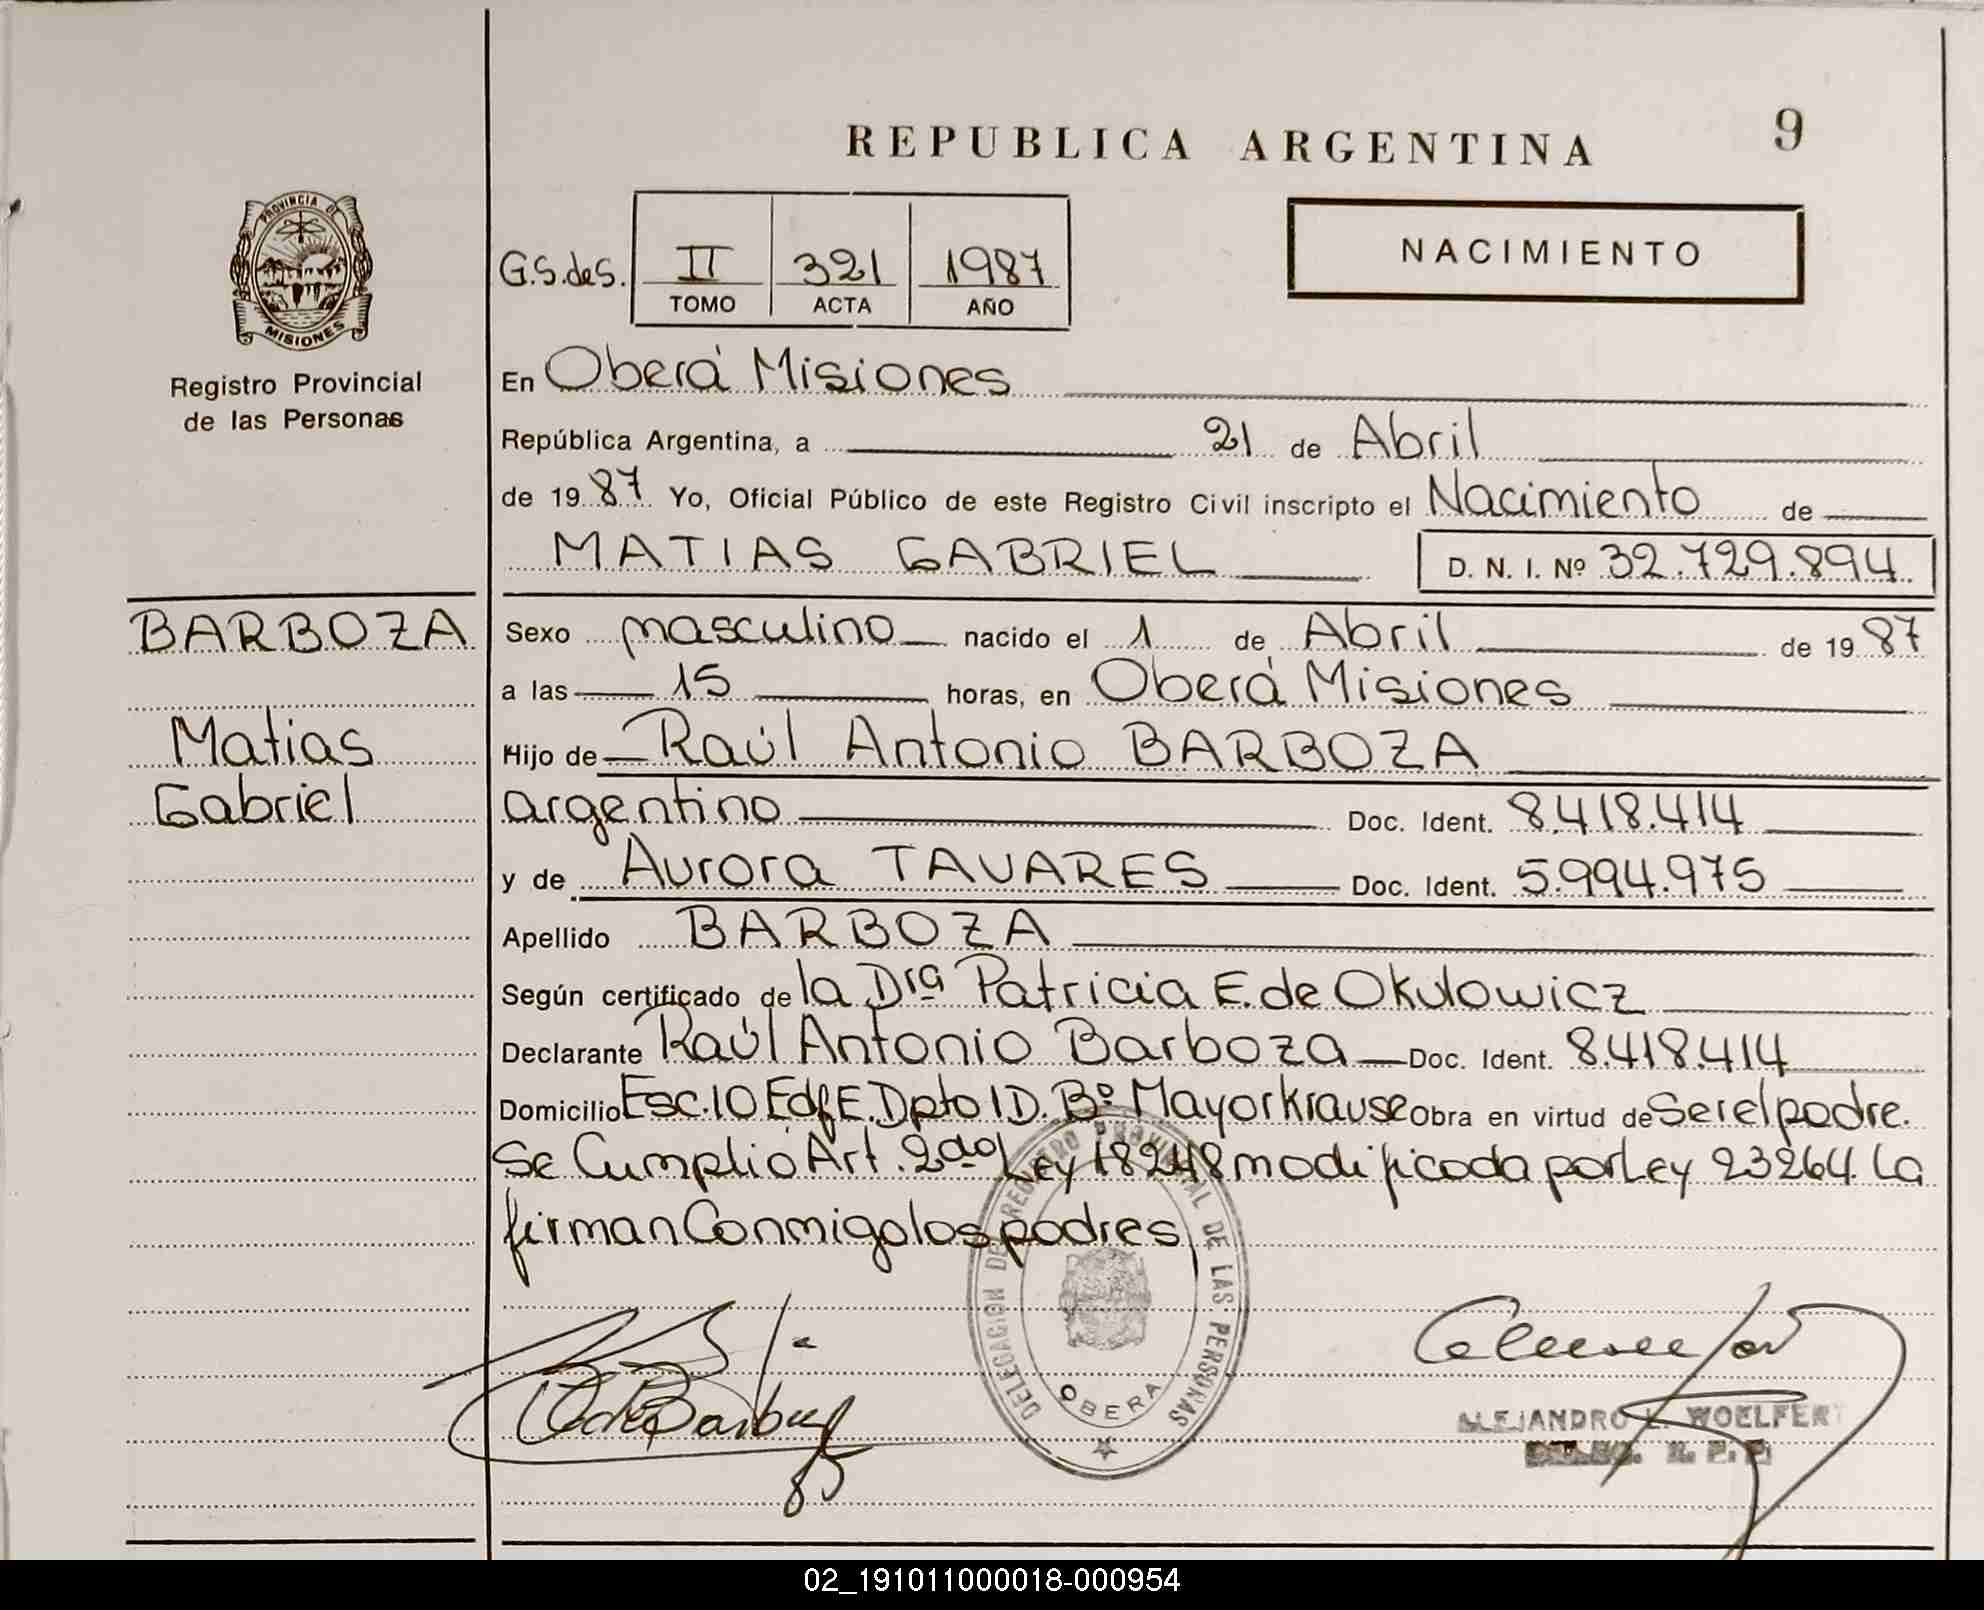 REPUBLICA ARGENTINA
9
PROVINCIA DE
MISIONES
Registro Provincial
de las Personas
NACIMIENTO
G.S.deS. II 321 1987
TOMO ACTA AÑO
En Oberá Misiones
República Argentina, a 21 de Abril
de 19 87 Yo, Oficial Público de este Registro Civil inscripto el Nacimiento de
MATIAS GABRIEL D. N. I. Nº 32.729.894
BARBOZA
Matias
Gabriel
Sexo masculino nacido el 1 de Abril de 19 87
a las 15 horas, en Oberá Misiones
Hijo de Raúl Antonio BARBOZA
argentino Doc. Ident. 8.418.414
y de Aurora TAVARES Doc. Ident. 5.994.975
Apellido BARBOZA
Según certificado de la Dra Patricia E. de Okulowicz
Declarante Raúl Antonio Barboza Doc. Ident. 8.418.414
Domicilio Esc.10 Edf E. Dpto 1D. Bº Mayor Krause Obra en virtud de Ser el padre.
Se Cumplio Art. 2do Ley 18248 modificada por Ley 23264. La
firman Conmigo los padres
DELEGACION DE REGISTRO PROVINCIAL DE LAS PERSONAS
OBERA
ALEJANDRO L. WOELFERT
R. P. P.
02_191011000018-000954